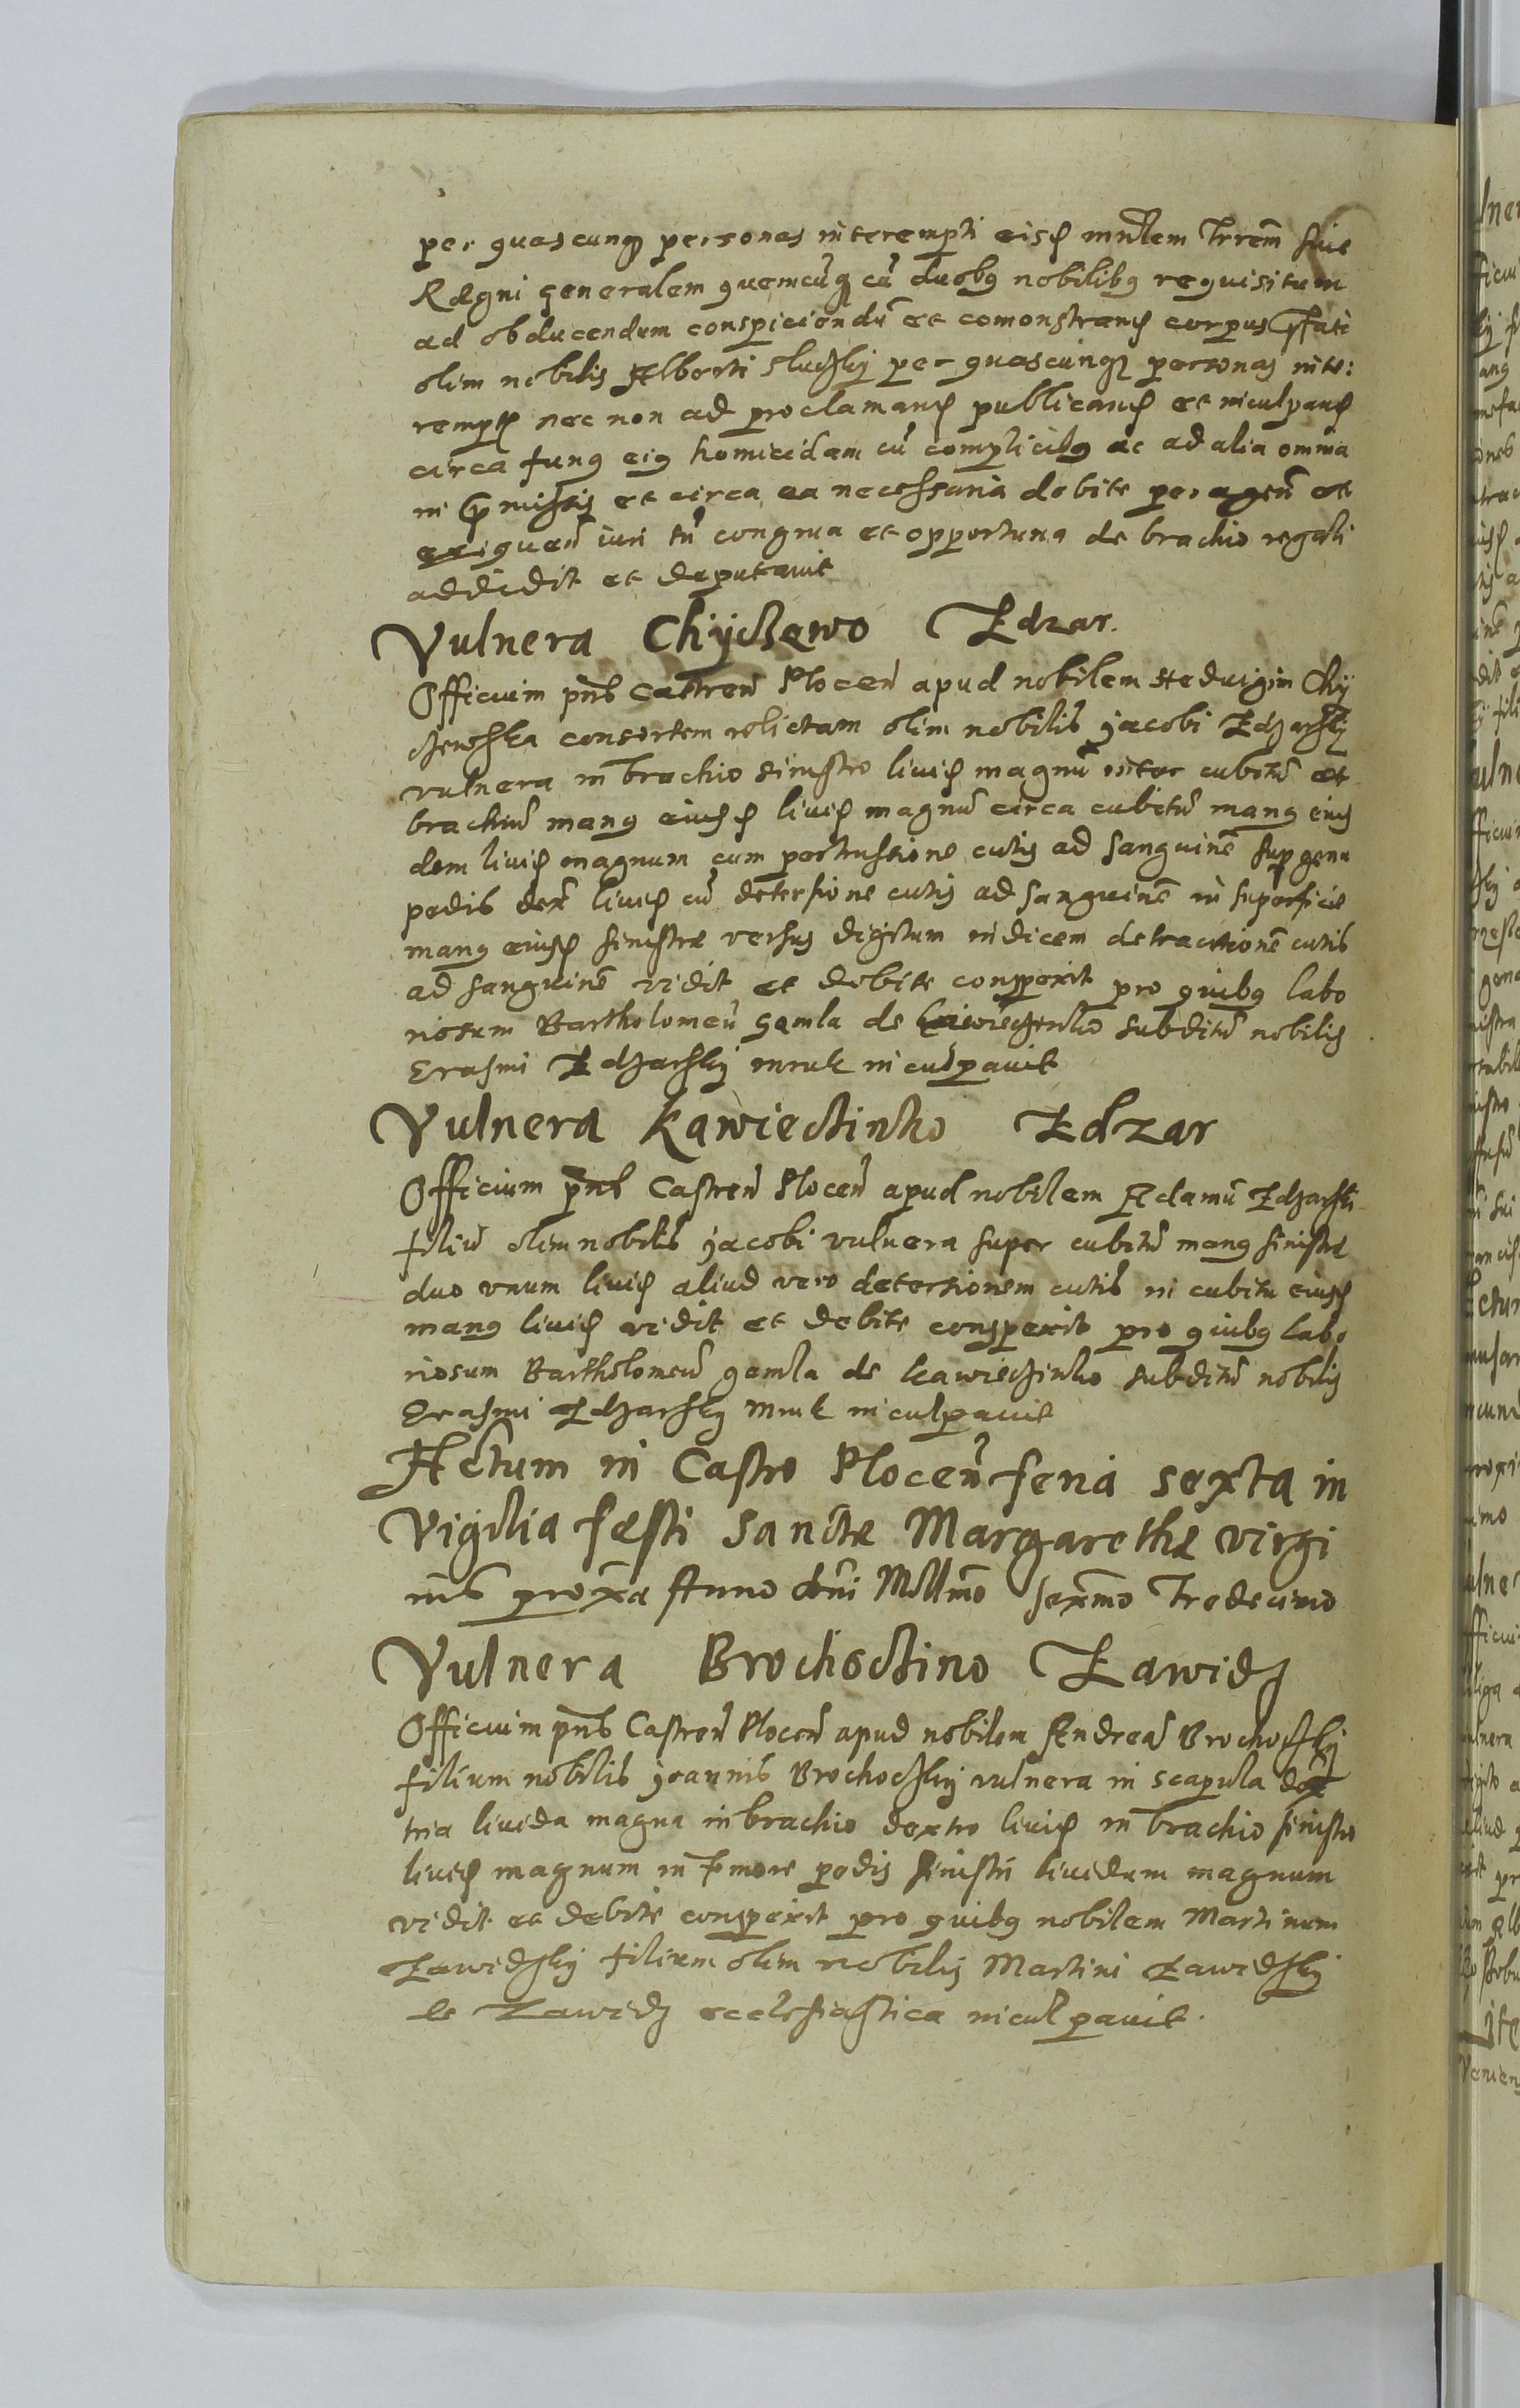 per quascunq personas interempti eisd mnlem Trrem siue
Regni generalem quemcuq cu duobq nobilibq requisitum
ad obducendum conspiciendu et comonstrand corpus pfati
olim nobilis Alberti Sluczkij per quascunq personas inte:
rempti nec non ad proclamand publicand et inculpand
circa funq eiq homicidam cu complicibq ac ad alia omnia
in pmissis et circa ea necessaria debite peragen et
exequen iuri tn congrua et opportuna de brachio regali
addidit et deputauit
Vulnera Chÿczewo Zdzar.
Officium pns Castren Plocen apud nobilem Heduigim Chÿ
czewska consortem relictam olim nobilis jacobi Zdzarskÿ
vulnera in brachio sinistro liuid magnu inter cubitu et
brachiu manq eiusd liuid magnu circa cubitu manq eius
dem liuid magnum cum pertussione cutis ad sanguine sup genu
pedis dex liuid cu detersione cutis ad sanguine in superficie
manq eiusd sinistre versus digitum indicem detractione cutis
ad sanguine vidit et debite conspexit pro quibq labo
riosum Bartholomeu Gamla de Kawieczinko subditu nobilis
Erasmi Zdzarskij mruk inculpauit
Vulnera Kawieczinko Zdzar
Officium pns Castren Plocen apud nobilem Adamu Zdzarski
filiu olim nobilis jacobi vulnera super cubitu manq sinistre
duo vnum liuid aliud vero detersionem cutis in cubitu eiusd
manq liuid vidit et debite conspexit pro quibq labo
riosum Bartholomeu gamla de kawieczinko subditu nobilis
Erasmi Zdzarskij Mruk inculpauit
Actum in Castro Plocen feria sexta in
Vigilia festi Sancte Margarethe virgi
nis proxa Anno dni Millmo sexmo Tredecimo
Vulnera Brochoczino Zawidz
Officium pns Castren Plocen apud nobilem Andrea Brochoczkij
filium nobilis joannis Brochoczkij vulnera in scapula dex
tria liuida magna in brachio dextro liuid in brachio sinistro
liuid magnum in femore pedis sinistri liuidum magnum
vidit et debite conspexit pro quibq nobilem Martinum
Zawidzkij filium olim nobilis Martini Zawidzkij
de Zawidz ecclesiastica inculpauit.